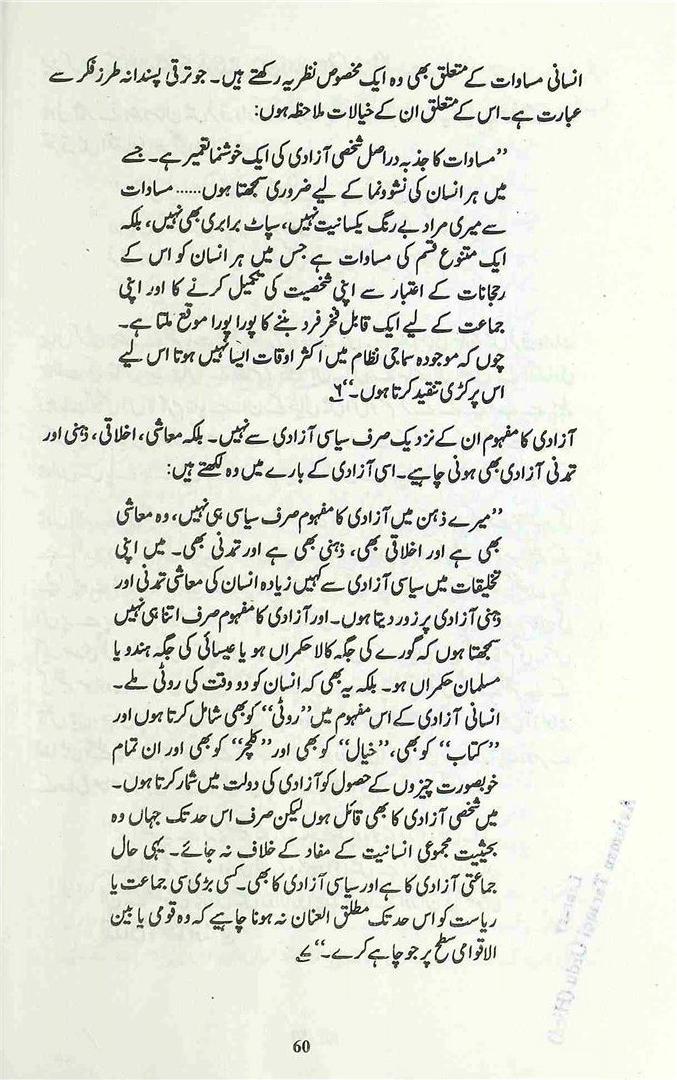 انسانی مساوات کے متعلق بھی وہ ایک مخصوص نظریہ رکھتے ہیں۔ جو ترقی پسندانہ طرز فکر سے
عبارت ہے۔ اس کے متعلق ان کے خیالات ملاحظہ ہوں:
”مساوات کا جذبہ دراصل شخصی آزادی کی ایک خوشنما تعمیر ہے۔ جسے
میں ہر انسان کی نشوونما کے لیے ضروری سمجھتا ہوں...... مساوات
سے میری مراد بے رنگ یکسانیت نہیں، سپاٹ برابری بھی نہیں، بلکہ
ایک متنوع قسم کی مساوات ہے جس میں ہر انسان کو اس کے
رجحانات کے اعتبار سے اپنی شخصیت کی تکمیل کرنے کا اور اپنی
جماعت کے لیے ایک قابل فخر فرد بننے کا پورا پورا موقع ملتا ہے۔
چوں کہ موجودہ سماجی نظام میں اکثر اوقات ایسا نہیں ہوتا اس لیے
اس پر کڑی تنقید کرتا ہوں۔“۶
آزادی کا مفہوم ان کے نزدیک صرف سیاسی آزادی سے نہیں۔ بلکہ معاشی، اخلاقی، ذہنی اور
تمدنی آزادی بھی ہونی چاہیے۔ اسی آزادی کے بارے میں وہ لکھتے ہیں:
”میرے ذہن میں آزادی کا مفہوم صرف سیاسی ہی نہیں، وہ معاشی
بھی ہے اور اخلاقی بھی، ذہنی بھی ہے اور تمدنی بھی۔ میں اپنی
تخلیقات میں سیاسی آزادی سے کہیں زیادہ انسان کی معاشی تمدنی اور
ذہنی آزادی پر زور دیتا ہوں۔ اور آزادی کا مفہوم صرف اتنا ہی نہیں
سمجھتا ہوں کہ گورے کی جگہ کالا حکمراں ہو یا عیسائی کی جگہ ہندو یا
مسلمان حکمراں ہو۔ بلکہ یہ بھی کہ انسان کو دو وقت کی روٹی ملے۔
انسانی آزادی کے اس مفہوم میں ”روٹی“ کو بھی شامل کرتا ہوں اور
”کتاب“ کو بھی، ”خیال“ کو بھی اور ”کلچر“ کو بھی اور ان تمام
خوبصورت چیزوں کے حصول کو آزادی کی دولت میں شمار کرتا ہوں۔
میں شخصی آزادی کا بھی قائل ہوں لیکن صرف اس حد تک جہاں وہ
بحیثیت مجموعی انسانیت کے مفاد کے خلاف نہ جائے۔ یہی حال
جماعتی آزادی کا ہے اور سیاسی آزادی کا بھی۔ کسی بڑی سی جماعت یا
ریاست کو اس حد تک مطلق العنان نہ ہونا چاہیے کہ وہ قومی یا بین
الاقوامی سطح پر جو چاہے کرے۔“۷
Anjuman Taraqqi Urdu (Hind)
60